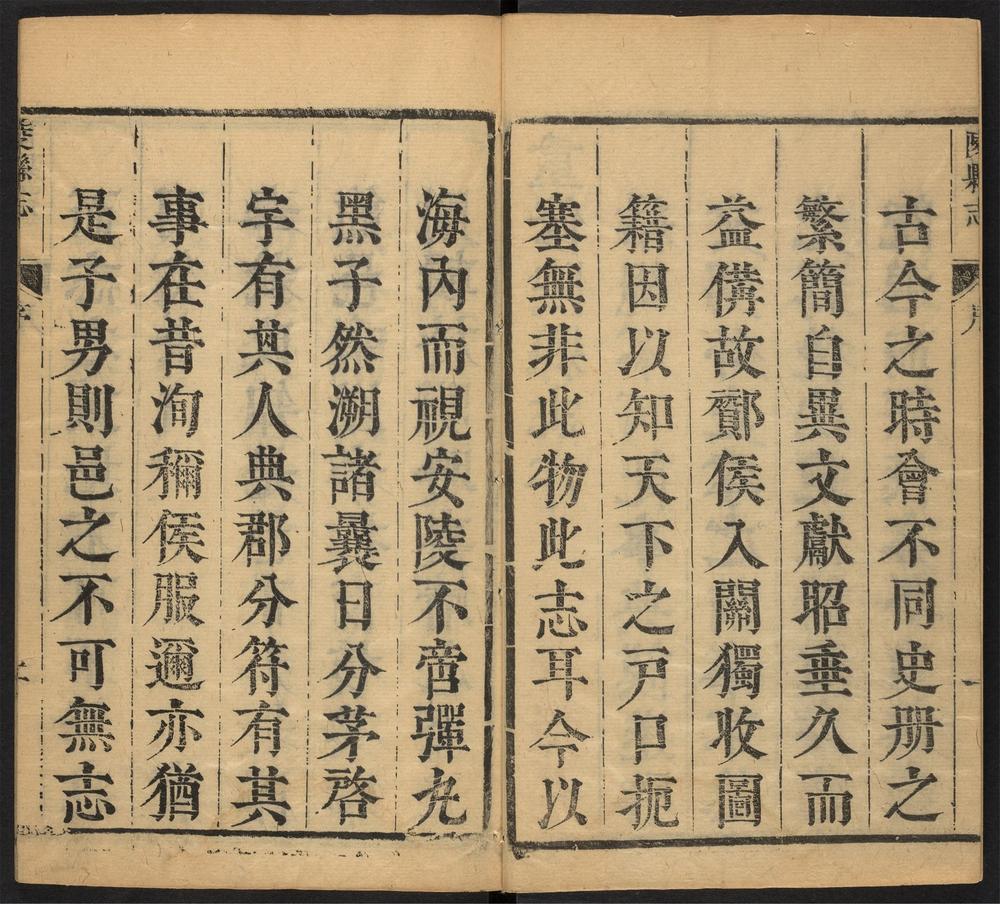 陵縣志
序
一
古今之時會不同史册之
繁簡自異文獻昭垂久而
益備故酇侯入關獨收圖
籍因以知天下之戸口扼
塞無非此物此志耳今以
海內而視安陵不啻彈丸
黑子然溯諸曩日分茅啓
宇有其人典郡分符有其
事在昔洵稱侯服邇亦猶
是子男則邑之不可無志
陵縣志
序